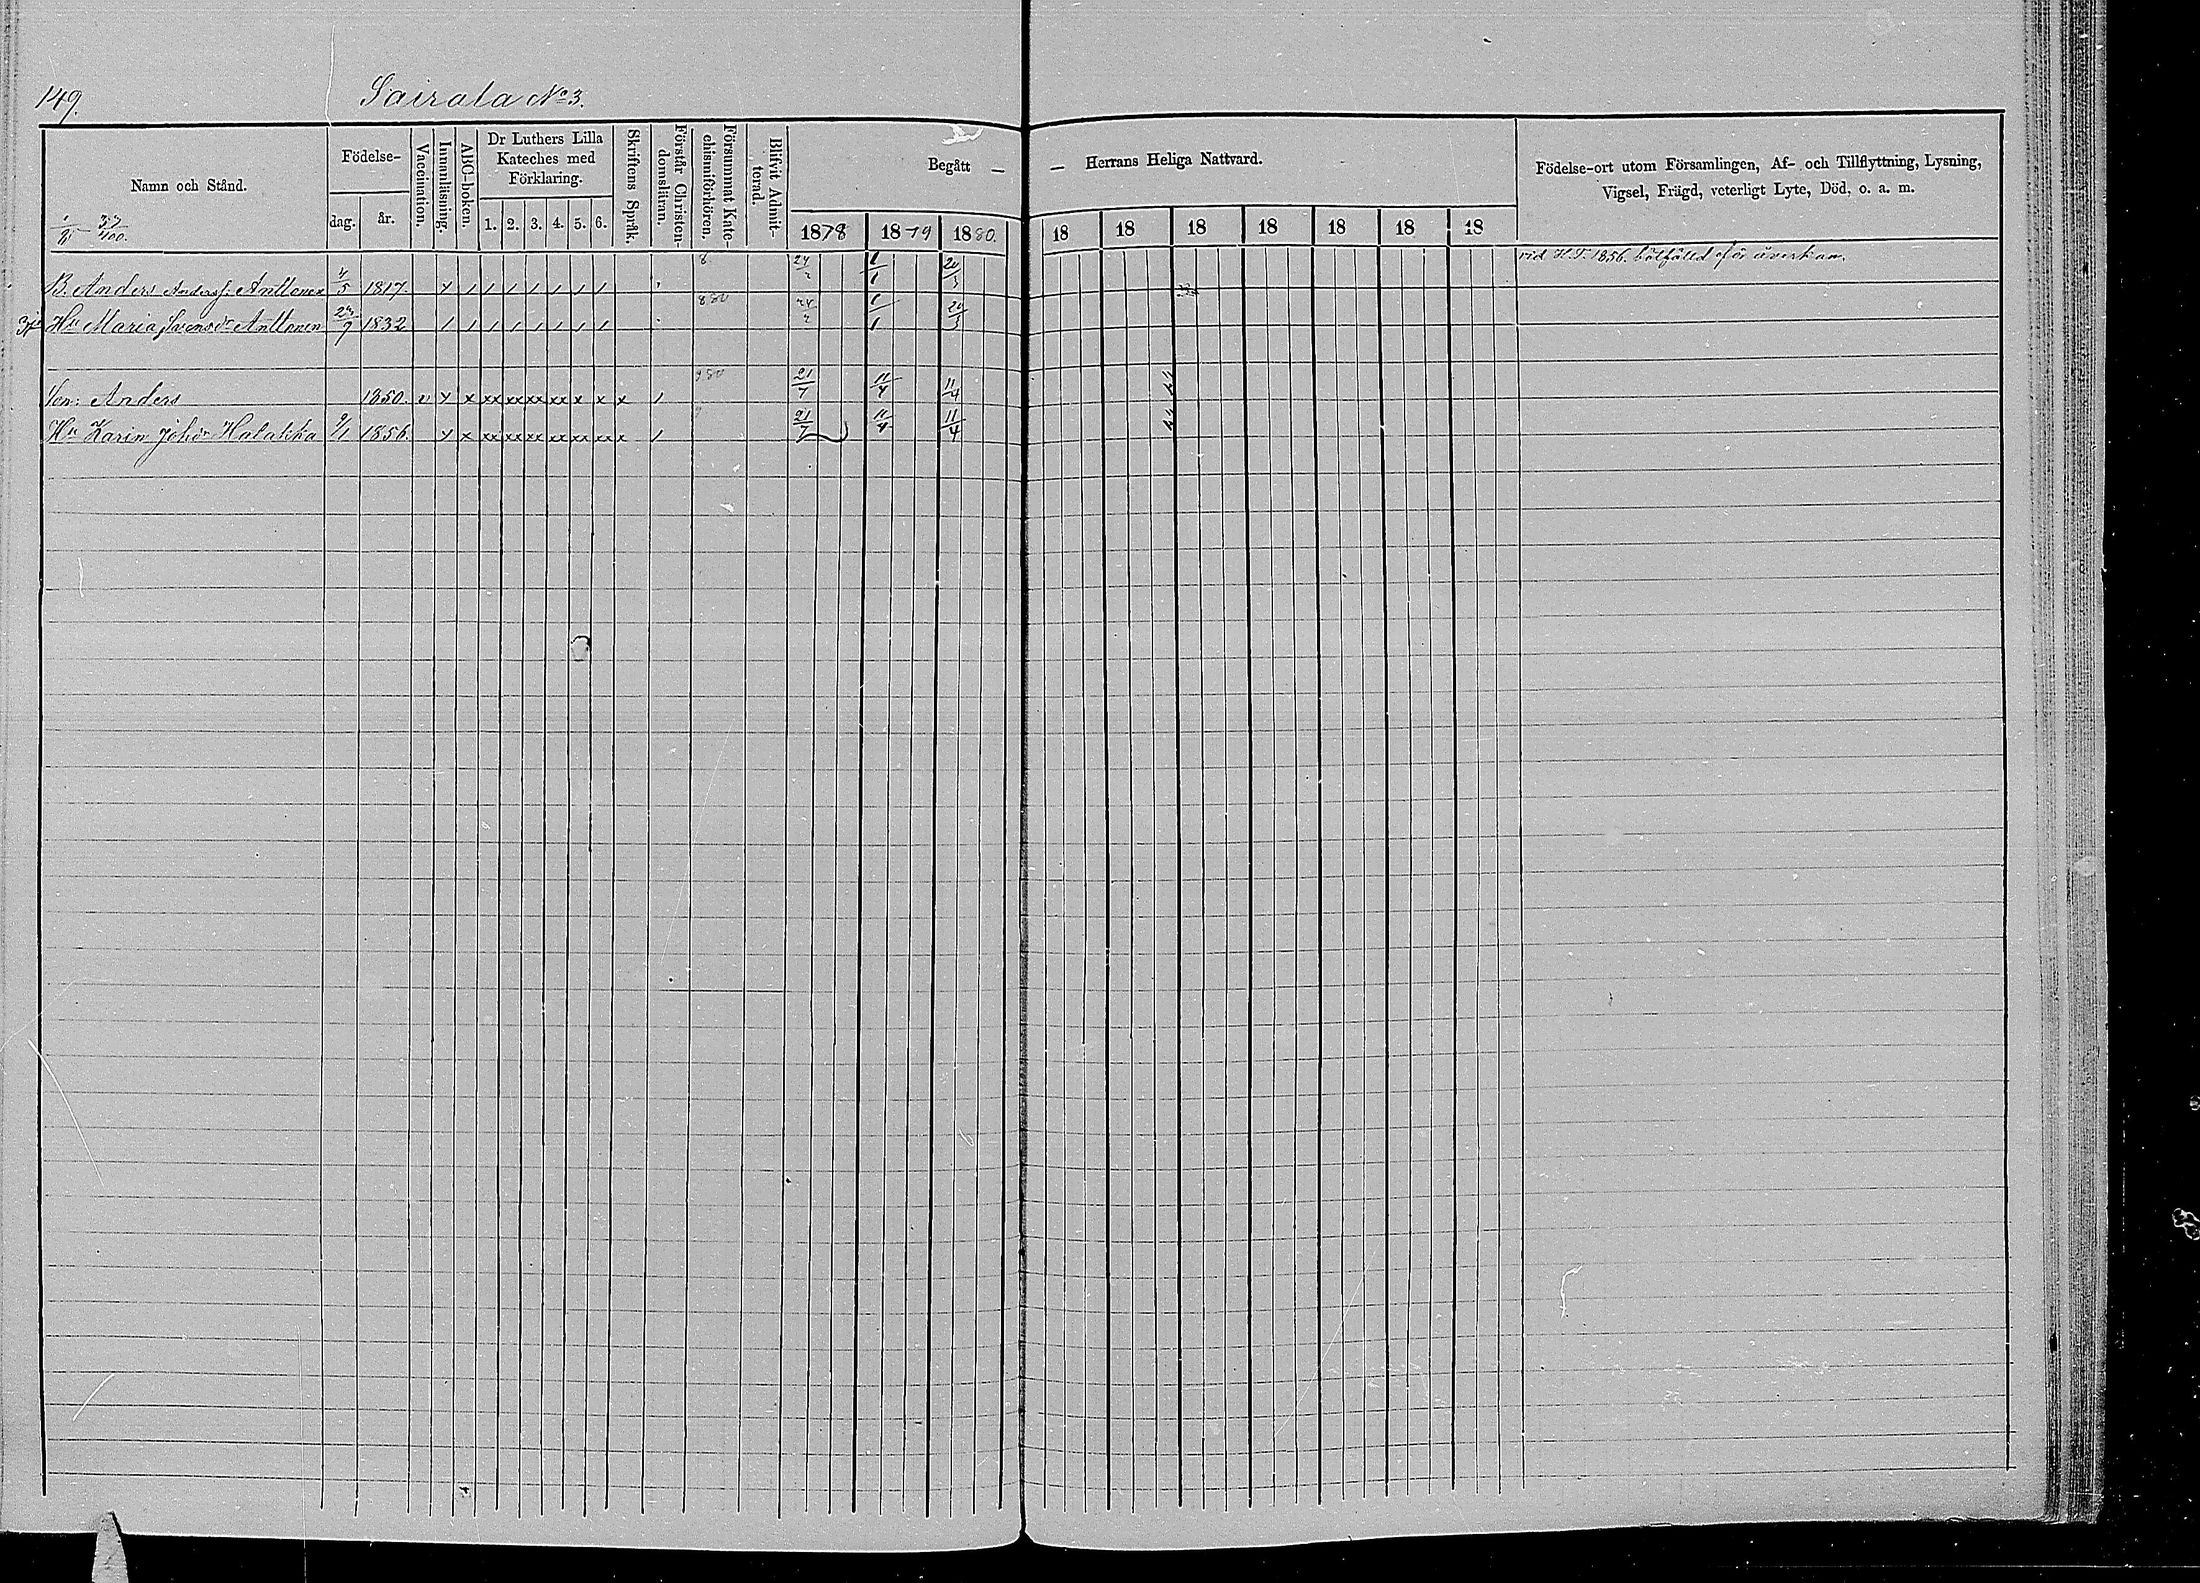 149. Sairala No 3.
Namn och Stånd.
Födelse-
dag.
år.
Vaccination.
Innanläsning.
ABC-boken.
Dr Luthers Lilla
Kateches med
Förklaring.
1. 2. 3. 4. 5. 6.
Skriftens Språk.
Förstår Christen-
domsläran.
Försummat Kate-
chismiförhören.
Blifvit Admit-
terad.
Begått —
— Herrans Heliga Nattvard.
1878 1879 1880. 18 18 18 18 18 18 18
Födelse-ort utom Församlingen, Af- och Tillflyttning, Lysning,
Vigsel, Frägd, veterligt Lyte, Död, o. a. m.
37/400.
vid H.T. 1856.
B. Anders Anderss: Anttonen 4/5 1817 24/2 1/1 20/3
Hu Maria Svensdr Anttonen 23/9 1832 880 24/2 1/1 20/3
Son: Anders 1850. v x x xx xx xx xx x x x 21/7 11/4 11/4
Hu Karin Johdr Halakka 9/1 1856. x x xx xx xx xx xx xx x 21/7 11/4 11/4